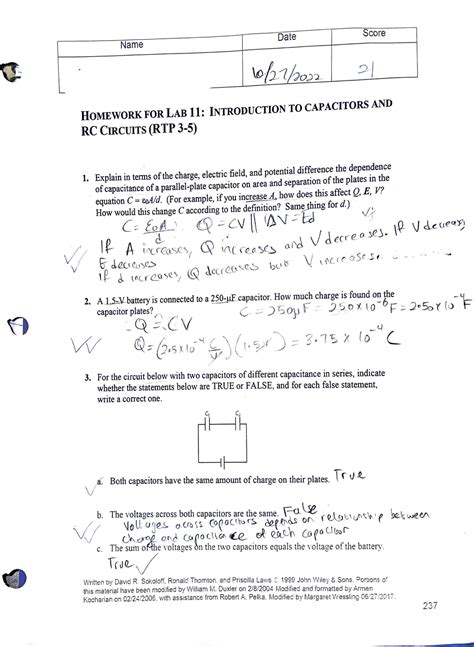 Name
Date
Score
10/27/2022
21
HOMEWORK FOR LAB 11: INTRODUCTION TO CAPACITORS AND
RC CIRCUITS (RTP 3-5)
1. Explain in terms of the charge, electric field, and potential difference the dependence
of capacitance of a parallel-plate capacitor on area and separation of the plates in the
equation C = ε₀A/d. (For example, if you increase A, how does this affect Q, E, V?
How would this change C according to the definition? Same thing for d.)
C = ε₀A/d Q = CV || ΔV = Ed
If A increases, Q increases and V decreases. If V decreases
E decreases
If d increases, Q decreases but V increases.
2. A 1.5-V battery is connected to a 250-µF capacitor. How much charge is found on the
capacitor plates? C = 250µF = 250 x 10⁻⁶ F = 2.50 x 10⁻⁴ F
Q = CV
Q = (2.5x10⁻⁴ C/V)(1.5V) = 3.75 x 10⁻⁴ C
3. For the circuit below with two capacitors of different capacitance in series, indicate
whether the statements below are TRUE or FALSE, and for each false statement,
write a correct one.
a. Both capacitors have the same amount of charge on their plates. True
b. The voltages across both capacitors are the same. False
Voltages across capacitors depends on relationship between
charge and capacitance of each capacitor
c. The sum of the voltages on the two capacitors equals the voltage of the battery.
True
Written by David R. Sokoloff, Ronald Thornton, and Priscilla Laws © 1999 John Wiley & Sons. Portions of
this material have been modified by William M. Duxler on 2/8/2004 Modified and formatted by Armen
Kocharian on 02/24/2006. with assistance from Robert A. Pelka. Modified by Margaret Wessling 06/27/2017.
237